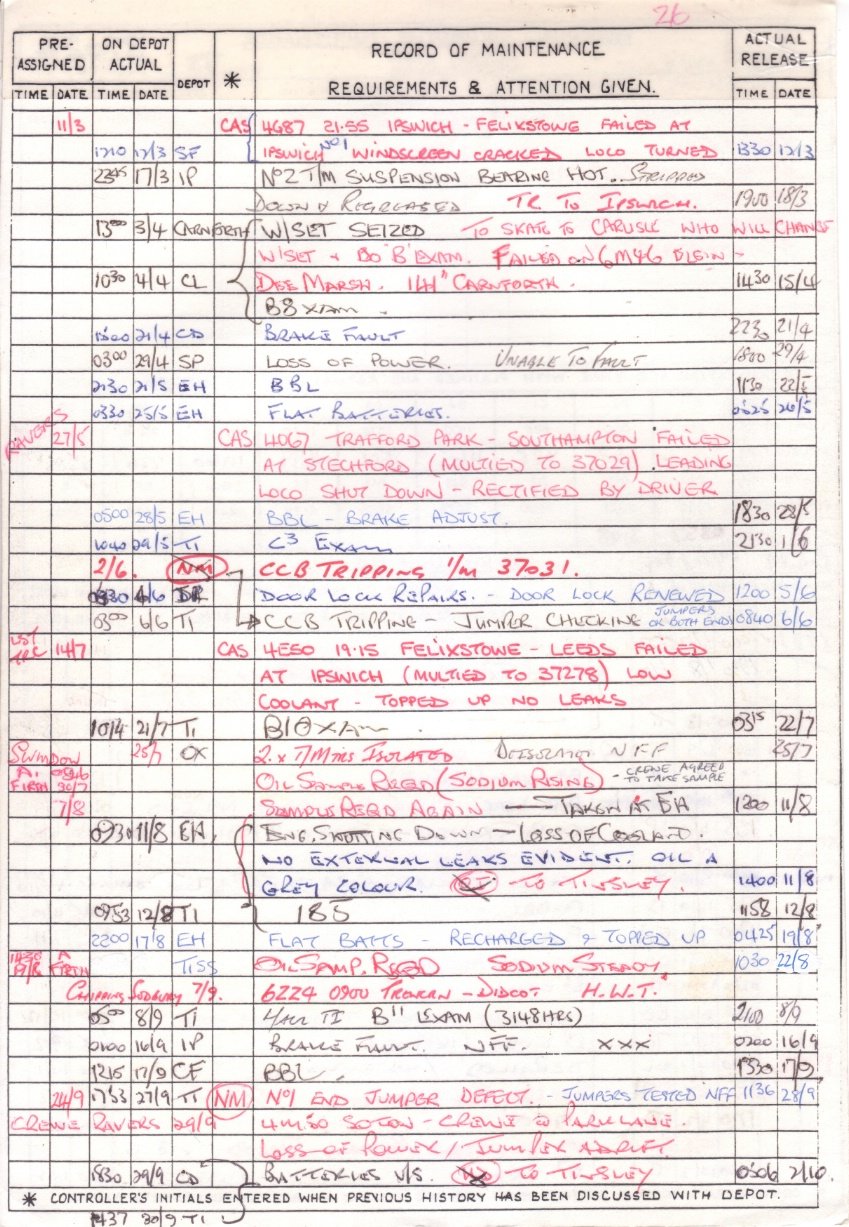 26
PRE-ASSIGNED ON DEPOT ACTUAL DEPOT * RECORD OF MAINTENANCE REQUIREMENTS & ATTENTION GIVEN. ACTUAL RELEASE
TIME DATE TIME DATE TIME DATE
11/3 CAS 4G87 21.55 IPSWICH - FELIXSTOWE FAILED AT
1210 12/3 SF IPSWICH Nº1 WINDSCREEN CRACKED LOCO TURNED 1330 12/3
2345 17/3 IP Nº2 T/M SUSPENSION BEARING HOT. STRIPPED
DOWN & REGREASED TR TO IPSWICH. 1900 18/3
1300 3/4 CARNFORTH W/SET SEIZED TO SKATE TO CARLISLE WHO WILL CHANGE
W/SET & DO 'B' EXAM. FAILED ON 6M46
1030 4/4 CL DEE MARSH. CARNFORTH. 1430 15/4
B8 XAM
1500 21/4 CD BRAKE FAULT 2230 21/4
0300 29/4 SP LOSS OF POWER. UNABLE TO FAULT 1800 29/4
2130 21/5 EH BBL 1130 22/5
0330 25/5 EH FLAT BATTERIES. 0525 26/5
RAVERS 27/5 CAS 4O67 TRAFFORD PARK - SOUTHAMPTON FAILED
AT STECHFORD (MULTIED TO 37029) LEADING
LOCO SHUT DOWN - RECTIFIED BY DRIVER
0500 28/5 EH BBL - BRAKE ADJUST. 1830 28/5
1040 29/5 TI C3 EXAM 2130 1/6
2/6. NM CCB TRIPPING I/M 37031.
0330 4/6 DR DOOR LOCK REPAIRS. - DOOR LOCK RENEWED 1200 5/6
0300 6/6 TI CCB TRIPPING - JUMPER CHECKING JUMPERS OK BOTH ENDS 0840 6/6
14/7 CAS 4E50 19.15 FELIXSTOWE - LEEDS FAILED
AT IPSWICH (MULTIED TO 37278) LOW
COOLANT - TOPPED UP NO LEAKS
1014 21/7 TI B10 XAM 0315 22/7
SWINDON 25/7 OX 2 x T/MTRS ISOLATED DEISOLATED NFF 25/7
A. FIRTH 0846 30/7 OIL SAMPLE REQD (SODIUM RISING) - CREWE AGREED TO TAKE SAMPLE
7/8 SAMPLE REQD AGAIN - TAKEN AT EH 1200 11/8
0930 11/8 EH ENG. SHUTTING DOWN - LOSS OF COOLANT.
NO EXTERNAL LEAKS EVIDENT. OIL A
GREY COLOUR. TO TINSLEY. 1400 11/8
0953 12/8 TI 185 1158 12/8
2200 17/8 EH FLAT BATTS - RECHARGED & TOPPED UP 0425 19/8
1430 19/8 A FIRTH TISS OIL SAMP. REQD SODIUM STEADY 1030 22/8
CHIPPING SODBURY 7/9. 6Z24 0900 - DIDCOT H.W.T.
0500 8/9 TI B11 EXAM (3148HRS) 2100 8/9
0100 16/9 IP BRAKE FAULT. NFF. XXX 0200 16/9
1215 17/9 CF BBL. 1330 17/9
24/9 1753 27/9 TI NM Nº1 END JUMPER DEFECT. - JUMPERS TESTED NFF 1136 28/9
CREWE RAVERS 29/9 4M50 SOTON - CREWE @ PARK LANE.
LOSS OF POWER / JUMPER ADRIFT
1830 29/9 CD BATTERIES U/S. TO TINSLEY 0506 2/10.
* CONTROLLER'S INITIALS ENTERED WHEN PREVIOUS HISTORY HAS BEEN DISCUSSED WITH DEPOT.
1437 30/9 TI